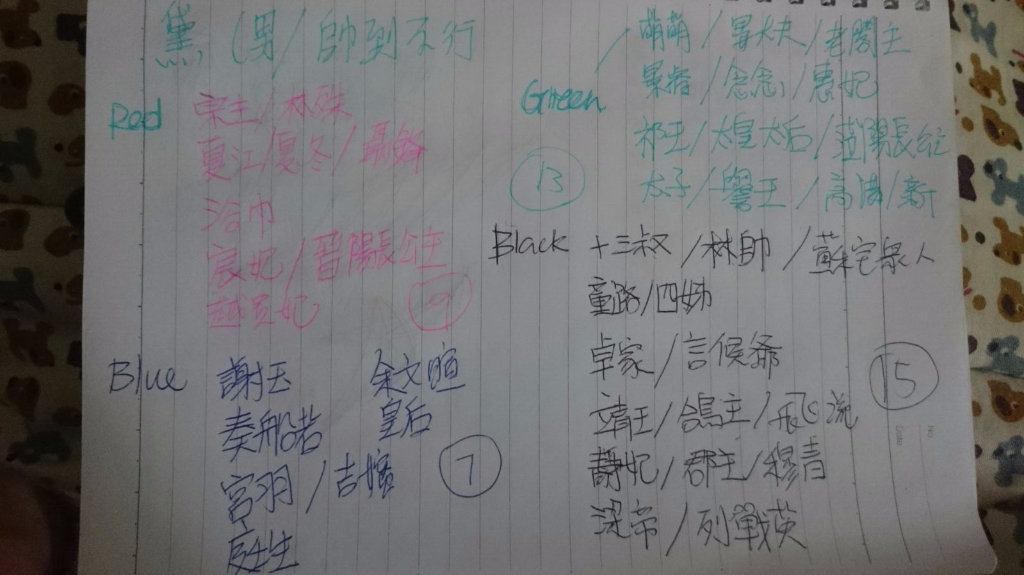 黛 (男/帥到不行
Red 宗主/林殊
夏江/夏冬/聶鋒
浴巾
宸妃/晉陽長公主
越貴妃
9
Blue 謝玉 余文暄
秦般若 皇后
宮羽/吉嬸
7
Green 萌萌/晏大夫/老閣主
景睿/念念/惠妃
祁王/太皇太后/蒞陽長公主
13
太子/譽王/高湛/新
Black 十三叔/林帥/蘇宅眾人
童路/四姊
卓家/言候爺
15
靖王/鴿主/飛流
靜妃/郡主/穆青
梁帝/列戰英